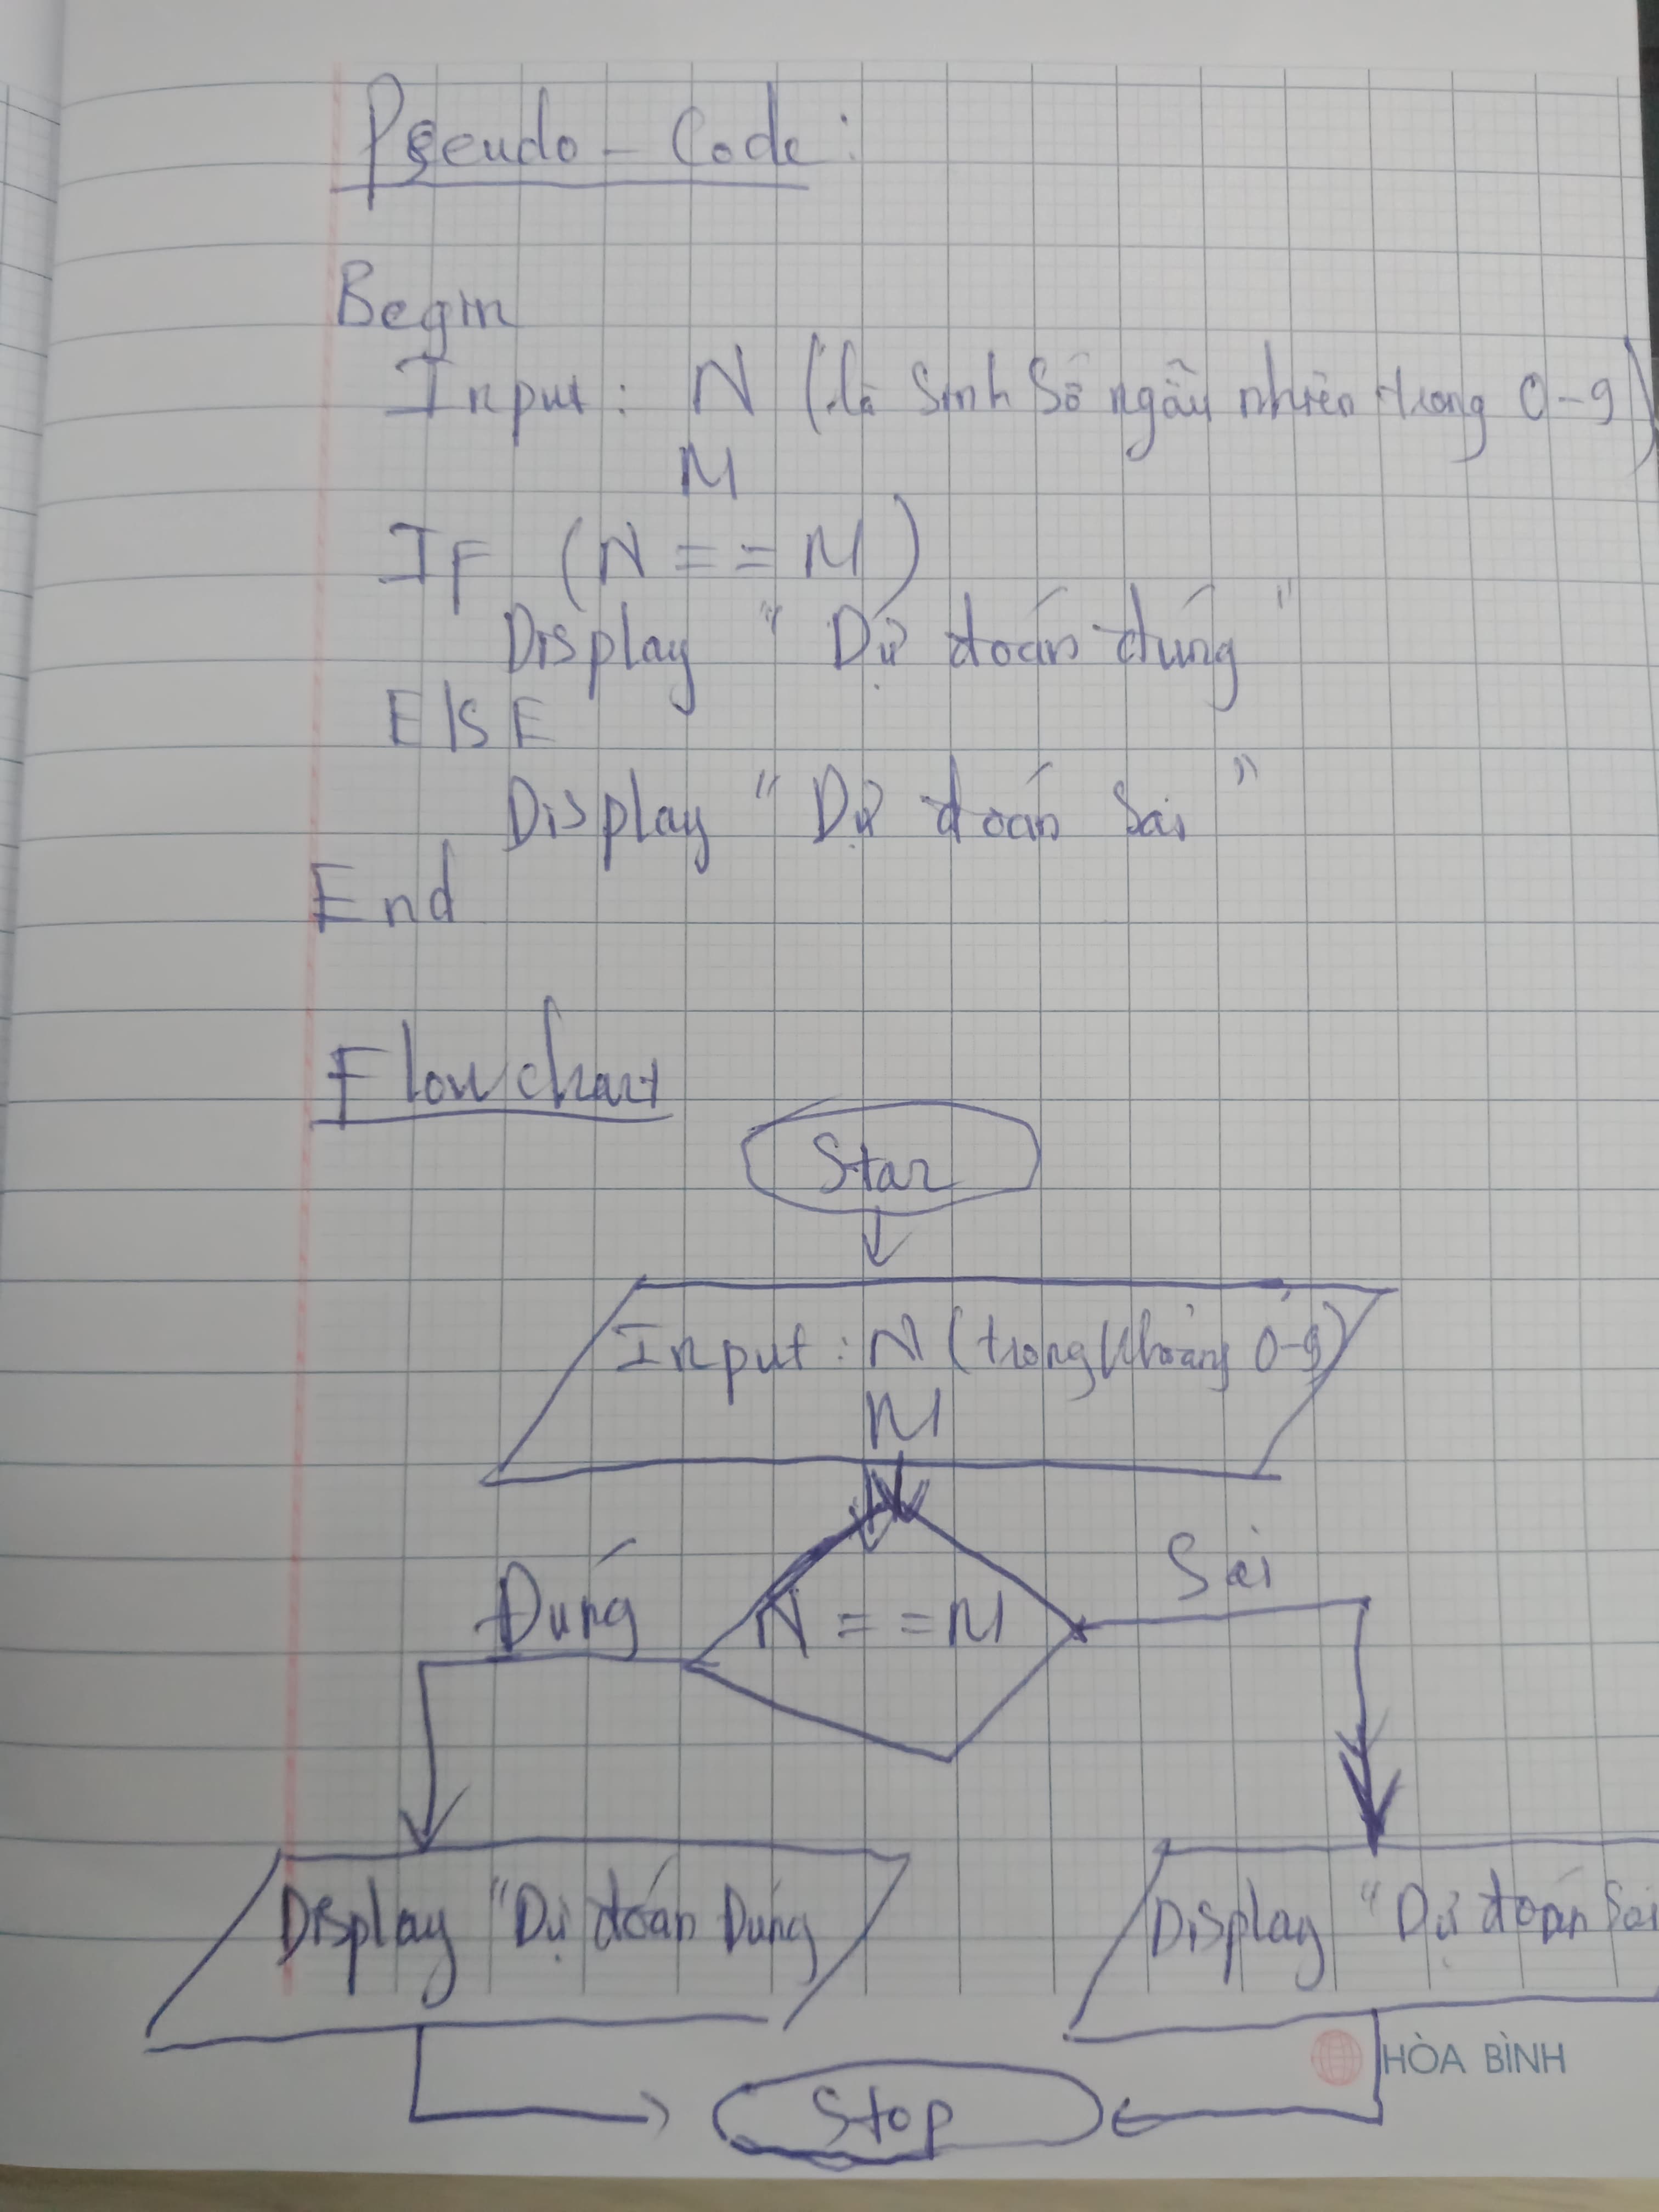 Pseudo - Code :
Begin
Input : N (là sinh số ngẫu nhiên trong 0-9)
M
IF (N == M)
Display " Dự đoán đúng "
ElSE
Display " Dự đoán Sai "
End
Flowchart
Star
Input : N (trong khoảng 0-9)
M
Đúng
N = = M
Sai
Display "Dự đoán Đúng
Display "Dự đoán Sai
HÒA BÌNH
Stop